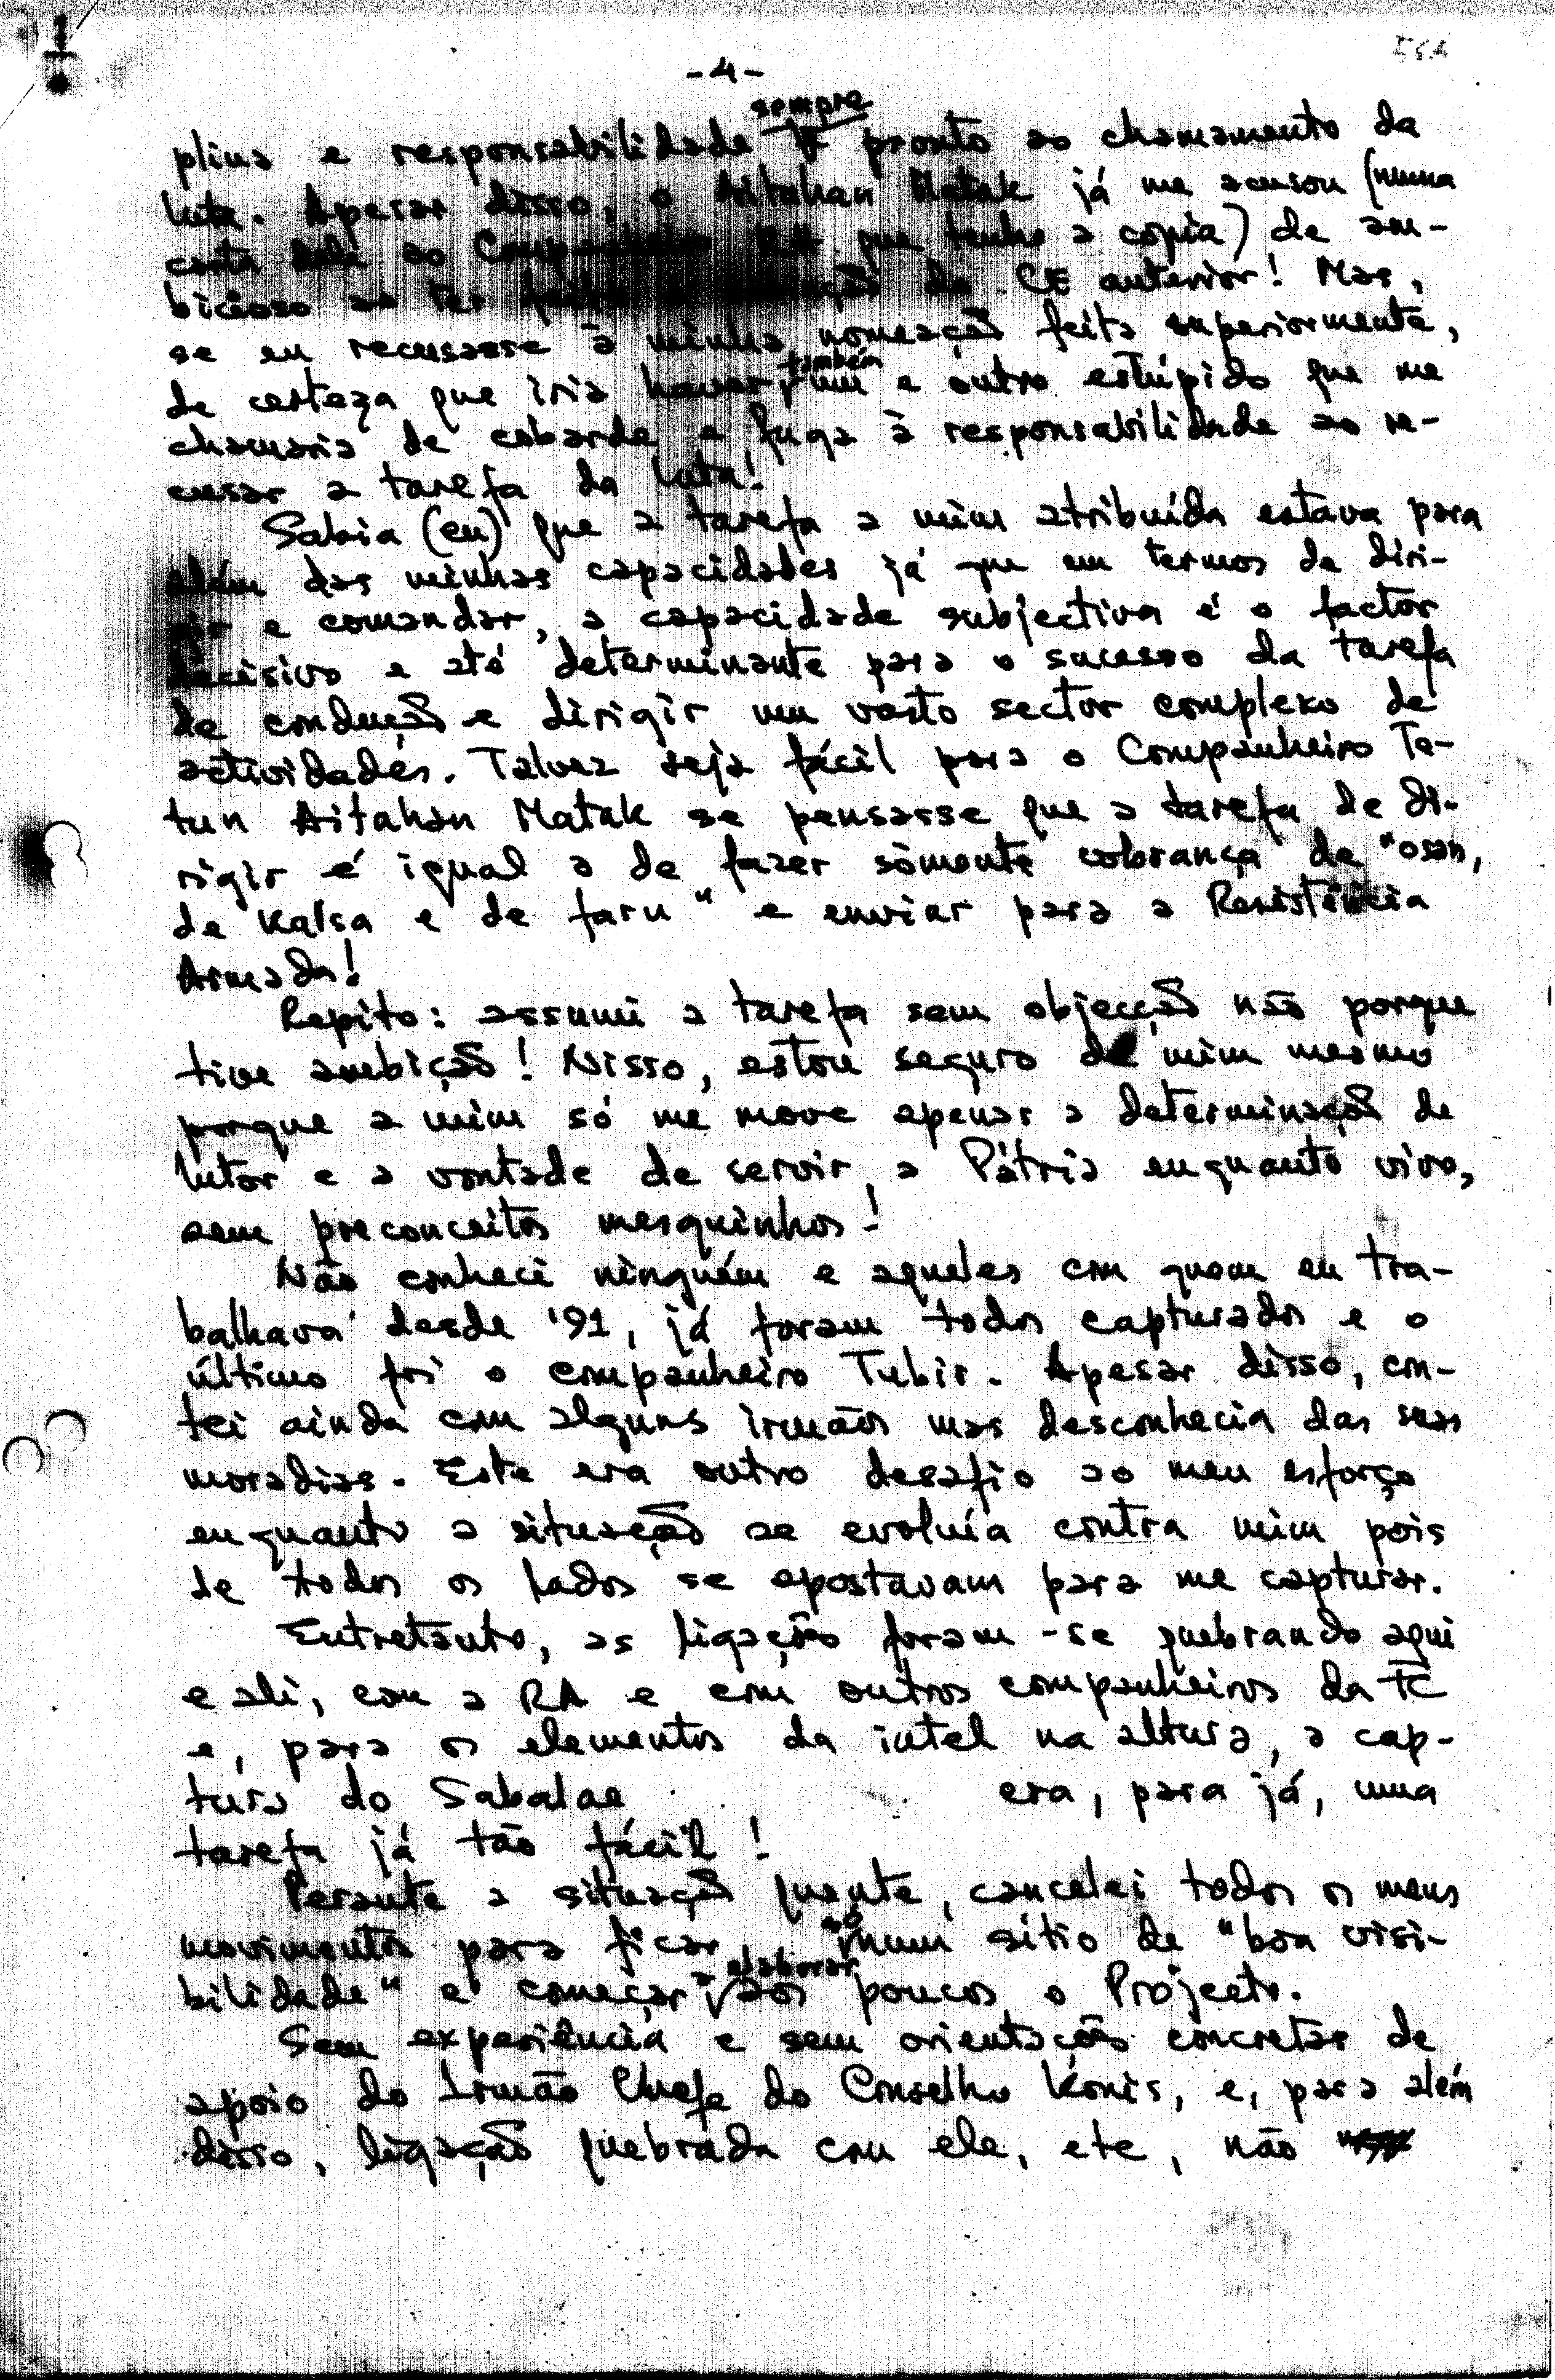 -4-
plina e responsabilidade sempre pronto ao chamamento da
luta. Apesar disso, o Aitahan Matak já me acusou (numa
carta dele ao Companheiro que tenho a cópia) de am-
bicioso ao ter do CE anterior! Mas,
se eu recusasse à minha nomeação feita superiormente,
de certeza que iria haver também um e outro estúpido que me
chamaria de cobarde e fuga à responsabilidade ao re-
cusar a tarefa da luta!
Sabia (eu) que a tarefa a mim atribuída estava para
além das minhas capacidades já que em termos de diri-
gir e comandar, a capacidade subjectiva é o factor
decisivo e até determinante para o sucesso da tarefa
de condução e dirigir um vasto sector complexo de
actividades. Talvez seja fácil para o Companheiro Te-
tun Aitahan Matak se pensasse que a tarefa de di-
rigir é igual a de fazer sòmente cobrança de "osan,
de kalsa e de faru" e enviar para a Resistência
Armada!
Repito: assumi a tarefa sem objecção não porque
tive ambição! Nisso, estou seguro de mim mesmo
porque a mim só me move apenas a determinação de
lutar e a vontade de servir a Pátria enquanto vivo,
sem preconceitos mesquinhos!
Não conheci ninguém e aqueles com quem eu tra-
balhava desde '91, já foram todos capturados e o
último foi o companheiro Tubir. Apesar disso, con-
tei ainda com alguns irmãos mas desconhecia das suas
moradias. Este era outro desafio ao meu esforço
enquanto a situação se evoluía contra mim pois
de todos os lados se apostavam para me capturar.
Entretanto, as ligações foram-se quebrando aqui
e ali, com a RA e com outros companheiros da FC
e, para os elementos da intel na altura, a cap-
tura do Sabalae era, para já, uma
tarefa já tão fácil!
Perante a situação quente, cancelei todos os meus
movimentos para ficar só num sítio de "boa visi-
bilidade" e começar a elaborar aos poucos o Projecto.
Sem experiência e sem orientações concretas de
apoio do Irmão Chefe do Conselho Konis, e, para além
disso, ligação quebrada com ele, etc, não